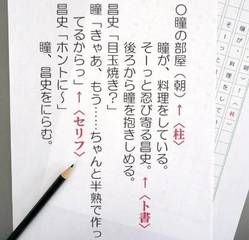 〇瞳の部屋（朝）←〈柱〉
瞳が、料理をしている。
そーっと忍び寄る昌史。←〈ト書〉
後ろから瞳を抱きしめる。
昌史「目玉焼き？」
瞳「きゃあ、もう……ちゃんと半熟で作っ
てるからっ」←〈セリフ〉
昌史「ホントに～」
瞳、昌史をにらむ。